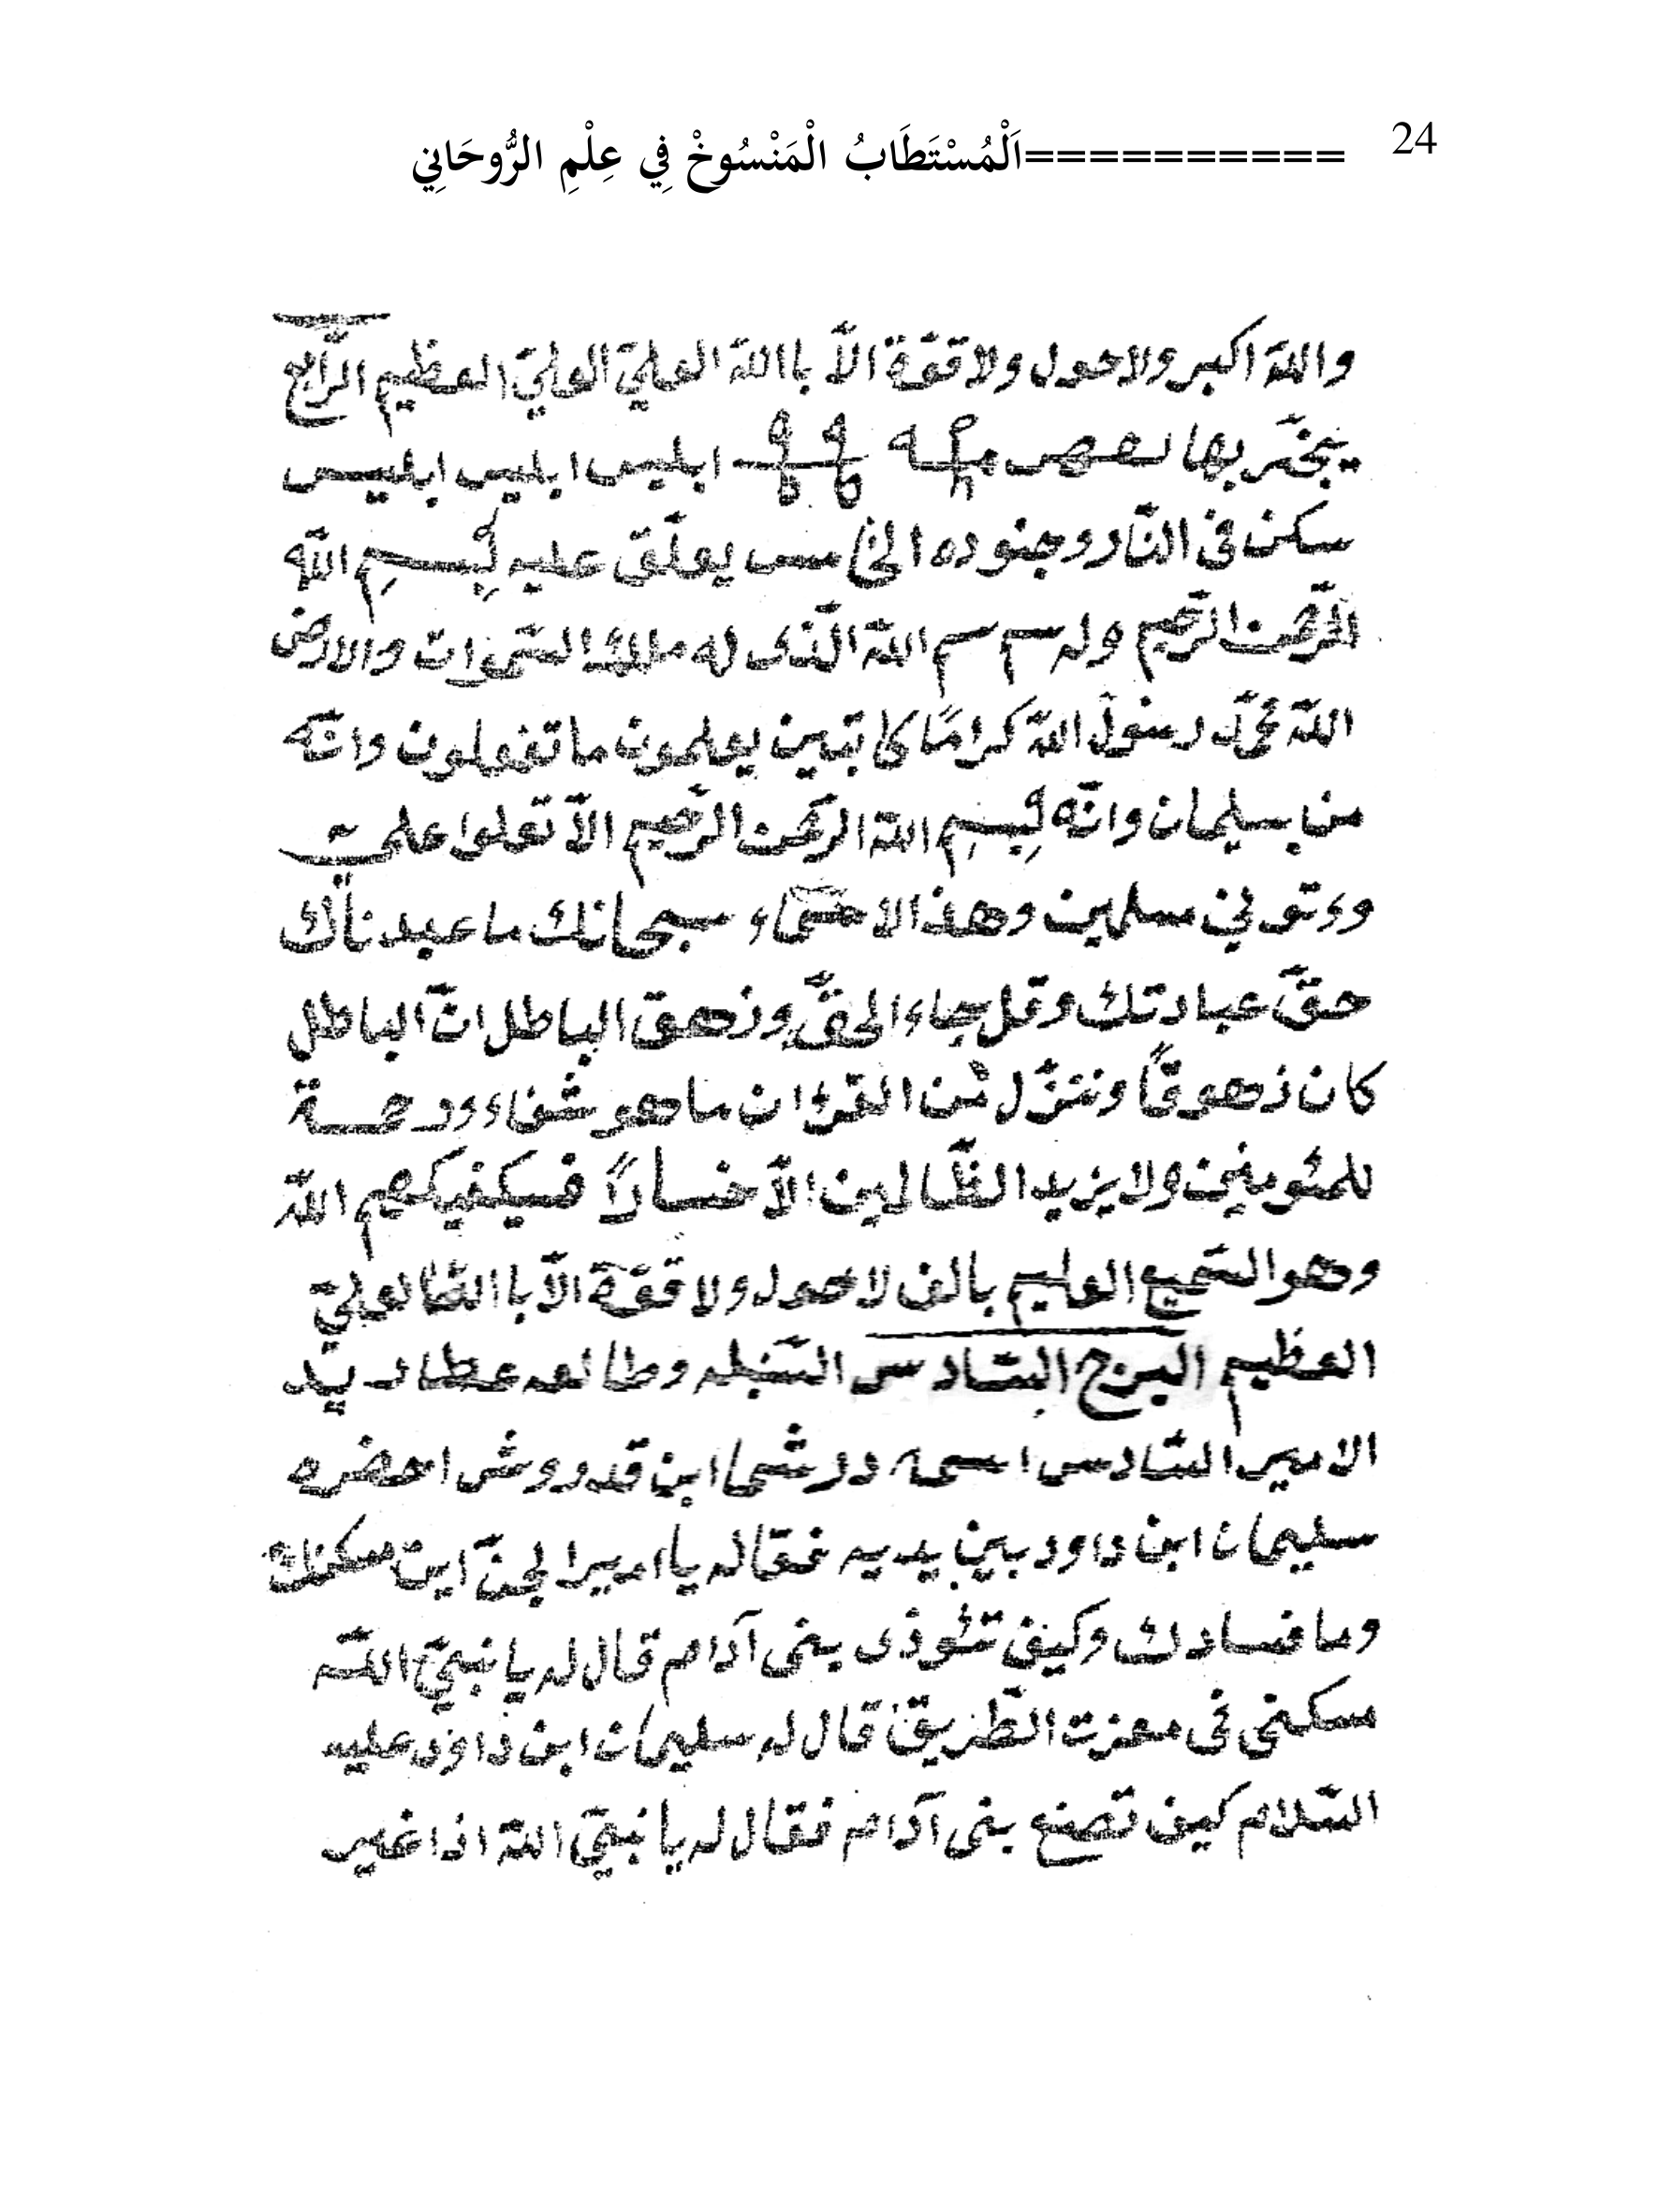 24 ==========اَلْمُسْتَطَابُ الْمَنْسُوخْ فِي عِلْمِ الرُّوحَانِي
والله اكبر ولا حول ولا قوّة الاّ باالله العليّ العليّ العظيم الرّابع
يبخّر بها ابليس ابليس ابليس
سكن فى النّار وجنوده الخامس يعلّق عليه بِسمِ اللّه
الرّحمن الرّحيم وله سم سم اللّه الّذى له ملك السّموات والارض
اللّه محمّد رسول اللّه كرامًا كاتبين يعلمون ما تفعلون وانّه
من سليمان وانّه بِسمِ اللّه الرّحمن الرّحيم الاّ تعلوا عليّ
وءتوني مسلمين وهذ الاسماء سبحانك ما عبدناك
حقّ عبادتك وقل جاء الحقّ وزهق الباطل انّ الباطل
كان زهوقاً وننزّل من القرءان ما هو شفاء ورحمة
للمئومنين ولا يزيد الظّالمين الاّ خسارًا فسيكفيكهم اللّه
وهو السّميع العليم بالف لا حول ولا قوّة الاّ باالله العليّ
العظيم البرج السّادس السّنبله وطالعه عطارد بيد
الامير السّادس اسمه درشما ابن قدروش احضره
سليمان ابن داود بين يديه فقاله يا امير الجنّ اين مسكنك
وما فسادك وكيف تئوذى بنى آدام قال له يا نبيّ اللّه
مسكنى فى معزت الطّريق قال له سليمان ابن داود عليه
السّلام كيف تصنع بنى آدام فقال له يا نبيّ اللّه اذا غير